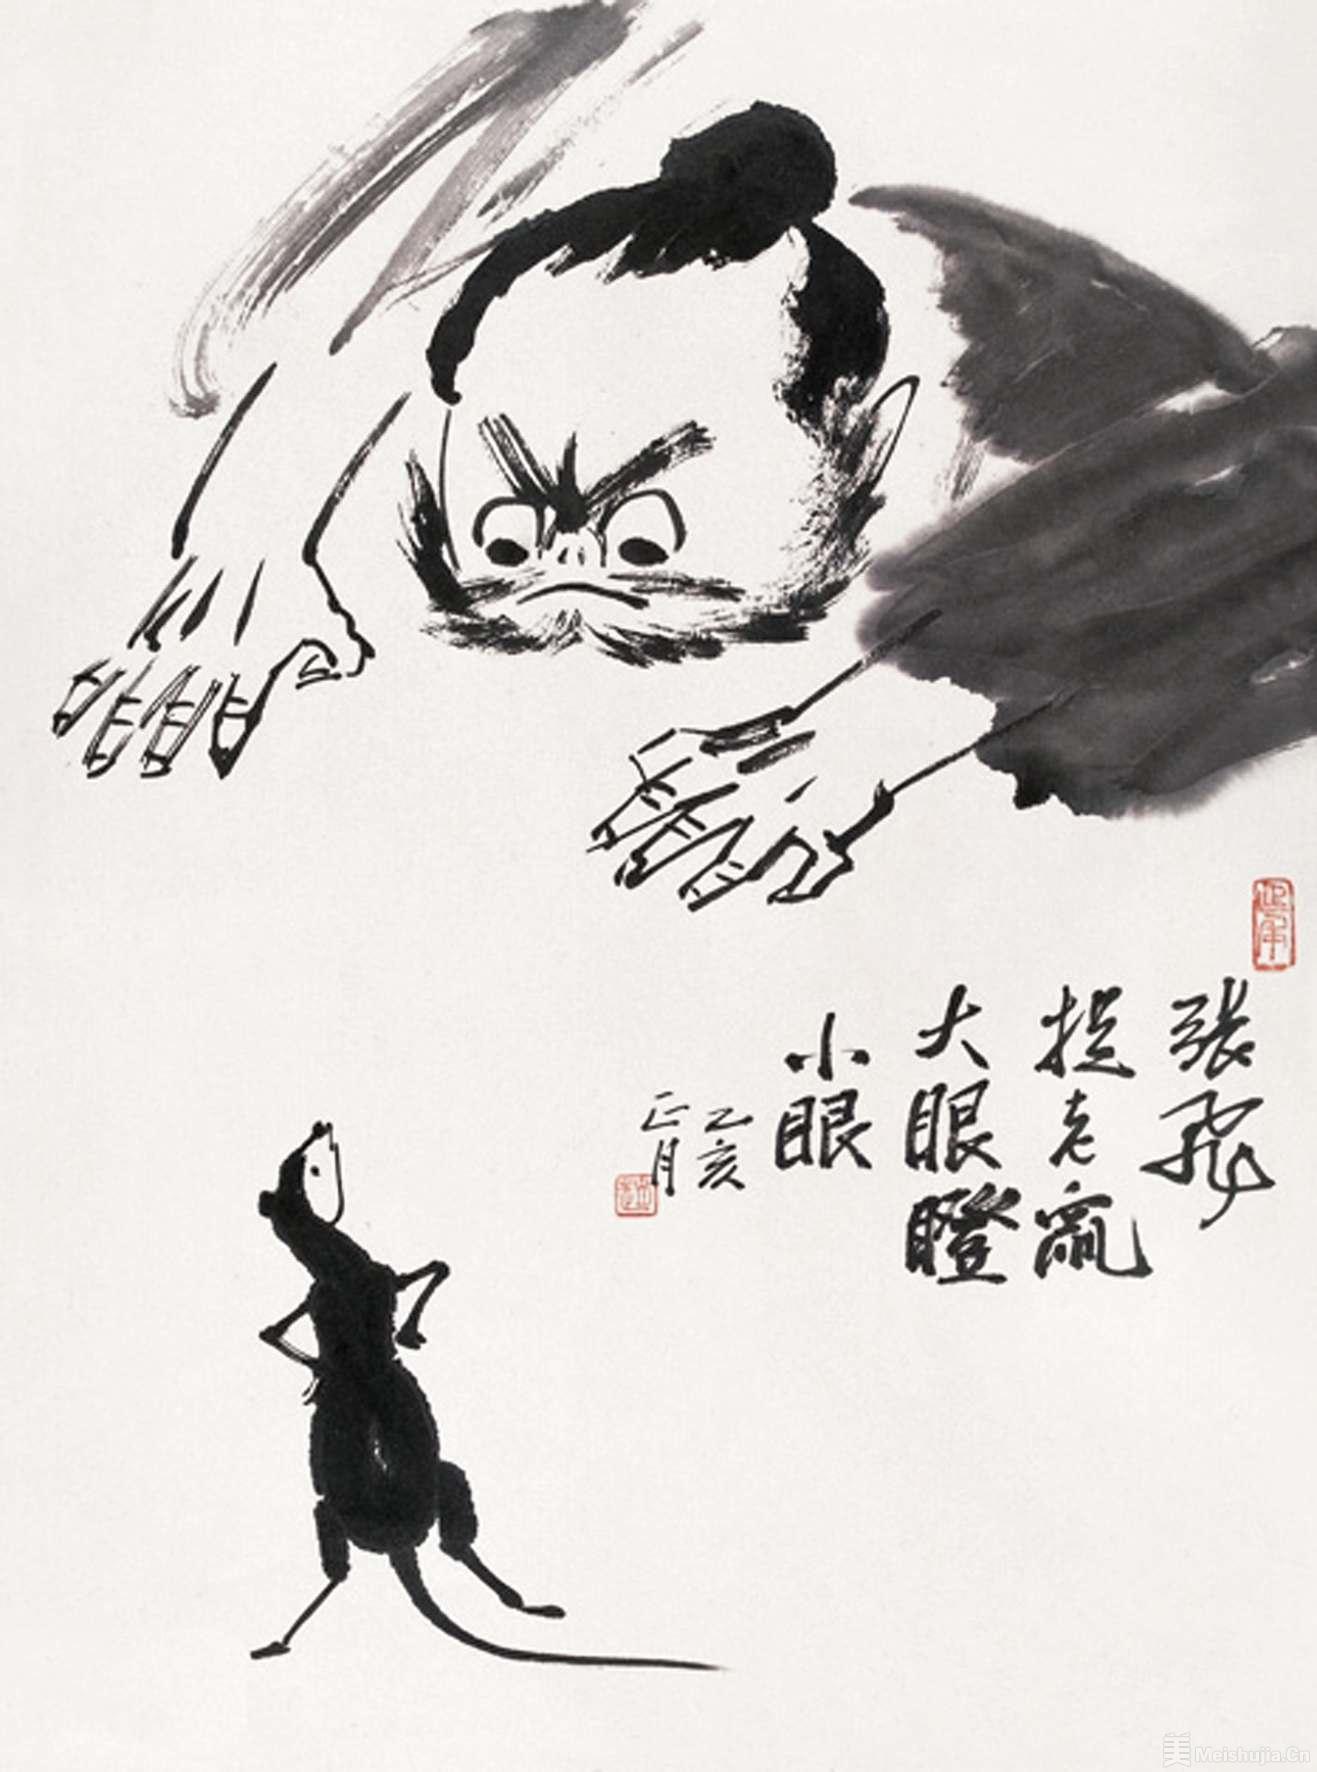 張飛
捉老鼠
大眼瞪
小眼
乙亥
正月
美 Meishujia.Cn